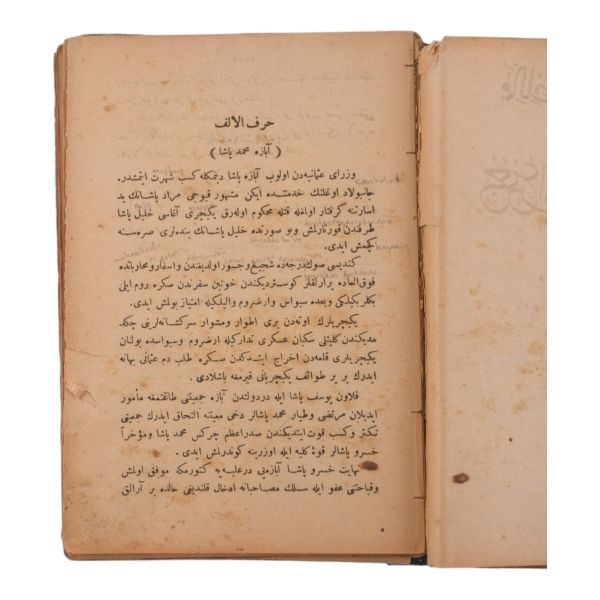 حرف الالف
( آبازه محمد پاشا )
وزرای عثمانیه‌دن اولوب آبازه پاشا دیمكله كسب شهرت ایتمشدر.
جانبولاد اوغلنك خدمتنده ایكن مشهور قیوجی مراد پاشانك ید
اسارتنه گرفتار اولمغله قتله محكوم اولەرق یكیچری آغاسی خلیل پاشا
طرفندن قورتارلمش وبو صورتده خلیل پاشانك بنده‌لری صره‌سنه
كچمش ایدی.
كندیسی صوك درجه‌ده شجیع وجسور اولدیغندن واسفار ومحارباتده
فوق العاده یرارلقلر كوستردیكندن خوتین سفرندن صكره روم ایلی
بكلر بكیلكی وبعده سیواس وارضروم والیلكیله امتیاز بولمش ایدی.
یكیچریلرك اوته‌دن بری اطوار ومشوار سركشانه‌لرینی چكه
مدیكندن كلیتلی سكبان عسكری تداركیله ارضروم وسیواسده بولنان
یكیچریلری قلعه‌دن اخراج ایتدكدن صكره طلب دم عثمانی بهانه
ایدرك بر بر طوائف یكیچریانی قیرمغه باشلادی.
قلاون یوسف پاشا ایله دردولندن آبازه جمعیتنی طاغتمغه مأمور
ایدیلان مرتضی وطیار محمد پاشالر دخی معیتنه التحاق ایدرك جمعیتی
تكثر وكسب قوت ایتدیكندن صدراعظم چركس محمد پاشا ومؤخراً
خسرو پاشالر قوۀ كلیه ایله اوزرینه كوندرلمش ایدی.
نهایت خسرو پاشا آبازه‌یی درعلیه‌یه كتورمكه موفق اولمش
وقباحتی عفو ایله سلك مصاحبانه ادخال قلندیغی حالده بر آرالق